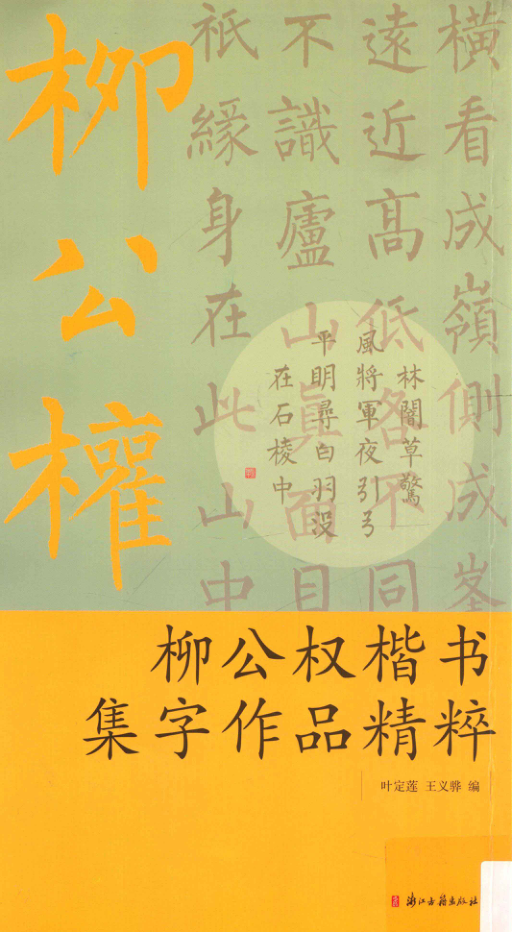 柳公權
橫看成嶺側成峯
遠近高低各不同
不識廬山真面目
祇緣身在此山中
林闇草驚
風將軍夜引弓
平明尋白羽没
在石棱中
柳公权楷书
集字作品精粹
叶定莲 王义骅 编
浙江古籍出版社